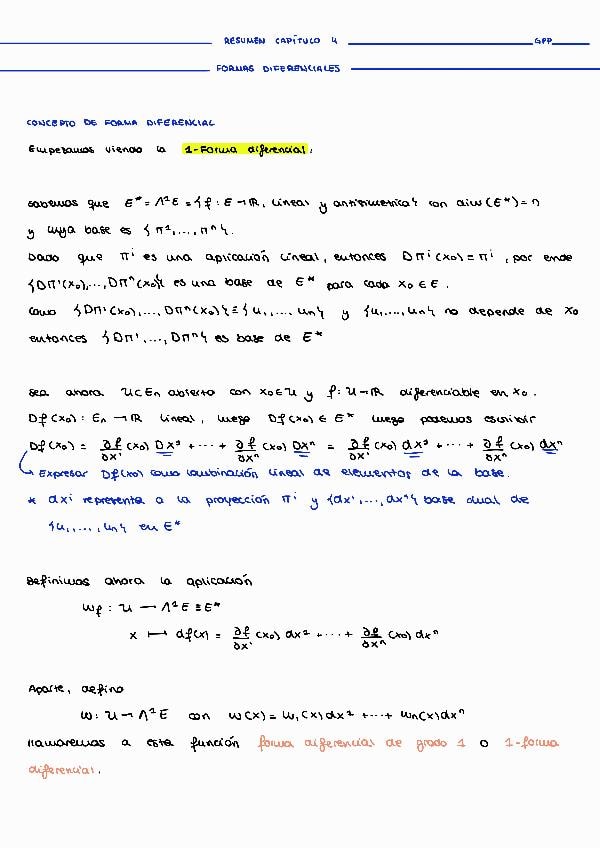 RESUMEN CAPÍTULO 4 GPP
FORMAS DIFERENCIALES
CONCEPTO DE FORMA DIFERENCIAL
Empezamos viendo la 1-Forma diferencial.
Sabemos que E* = Λ¹E = {f: E → ℝ, lineal y antisimétrica} con dim(E*) = n
y cuya base es {π¹,..., πⁿ}.
Dado que πⁱ es una aplicación lineal, entonces Dπⁱ(x₀) = πⁱ, por ende
{Dπ¹(x₀),..., Dπⁿ(x₀)} es una base de E* para cada x₀ ∈ E.
Como {Dπ¹(x₀),..., Dπⁿ(x₀)} ≡ {u₁,..., uₙ} y {u₁,..., uₙ} no depende de x₀
entonces {Dπ¹,..., Dπⁿ} es base de E*
Sea ahora U ⊂ Eₙ abierto con x₀ ∈ U y f: U → ℝ diferenciable en x₀.
Df(x₀): Eₙ → ℝ lineal, luego Df(x₀) ∈ E* luego podemos escribir
Df(x₀) = ∂f/∂x¹ (x₀) Dx¹ + ··· + ∂f/∂xⁿ (x₀) Dxⁿ = ∂f/∂x¹ (x₀) dx¹ + ··· + ∂f/∂xⁿ (x₀) dxⁿ
↳ Expresar Df(x₀) como combinación lineal de elementos de la base.
* dxi representa a la proyección πⁱ y {dx¹,..., dxⁿ} base dual de
{u₁,..., uₙ} en E*
Definimos ahora la aplicación
ωf: U → Λ¹E ≡ E*
x ↦ df(x) = ∂f/∂x¹ (x₀) dx¹ + ··· + ∂f/∂xⁿ (x₀) dxⁿ
Aparte, defino
ω: U → Λ¹E con ω(x) = ω₁(x) dx¹ + ··· + ωₙ(x) dxⁿ
llamaremos a esta función forma diferencial de grado 1 o 1-forma
diferencial.